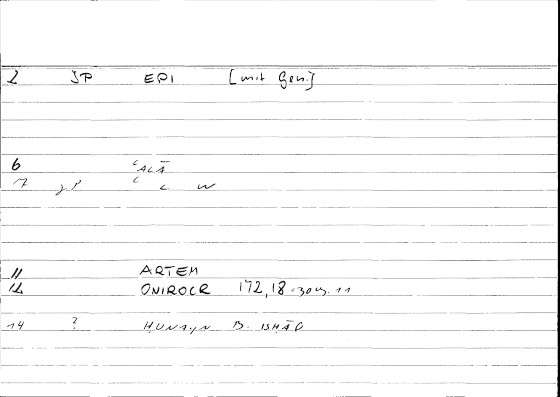 2 JP EPI [mit Gen.]
6 ʿALĀ
7 JP ʿ L W
11 ARTEM
12 ONIROCR 172,18
14 ? HUNAYN B. ISHĀQ